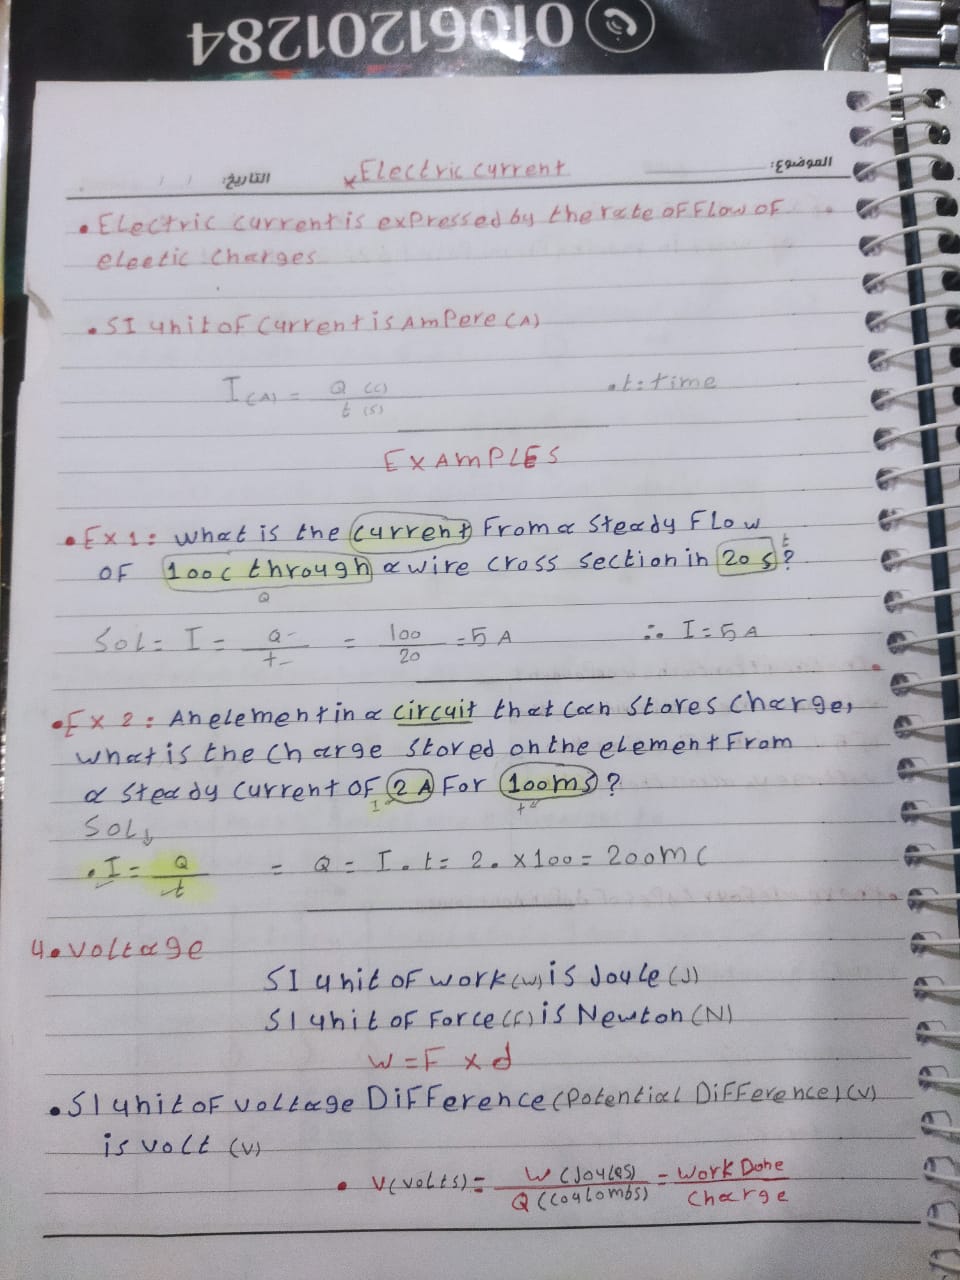 01061201284
الموضوع:
* Electric current
التاريخ: / /
• Electric current is expressed by the rate of flow of
eleetic charges
• SI unit of current is Ampere (A)
I(A) = Q (C) / t (s) • t: time
EXAMPLES
• Ex 1: what is the current from a steady flow
of 100c through a wire cross section in 20 s? t
Q
Sol= I = Q / t = 100 / 20 = 5 A ∴ I = 5 A
• Ex 2: An element in a circuit that can stores charge,
what is the charge stored on the element from
a steady current of 2 A for 100ms?
I t
Sol↓
• I = Q / t = Q = I . t = 2 . x 100 = 200 m C
4. Voltage
SI unit of work (w) is Joule (J)
SI unit of Force (f) is Newton (N)
W = F x d
• SI unit of voltage Difference (Potential Difference) (V)
is volt (V)
• V (volts) = W (Joules) / Q (Coulombs) = Work Done / Charge